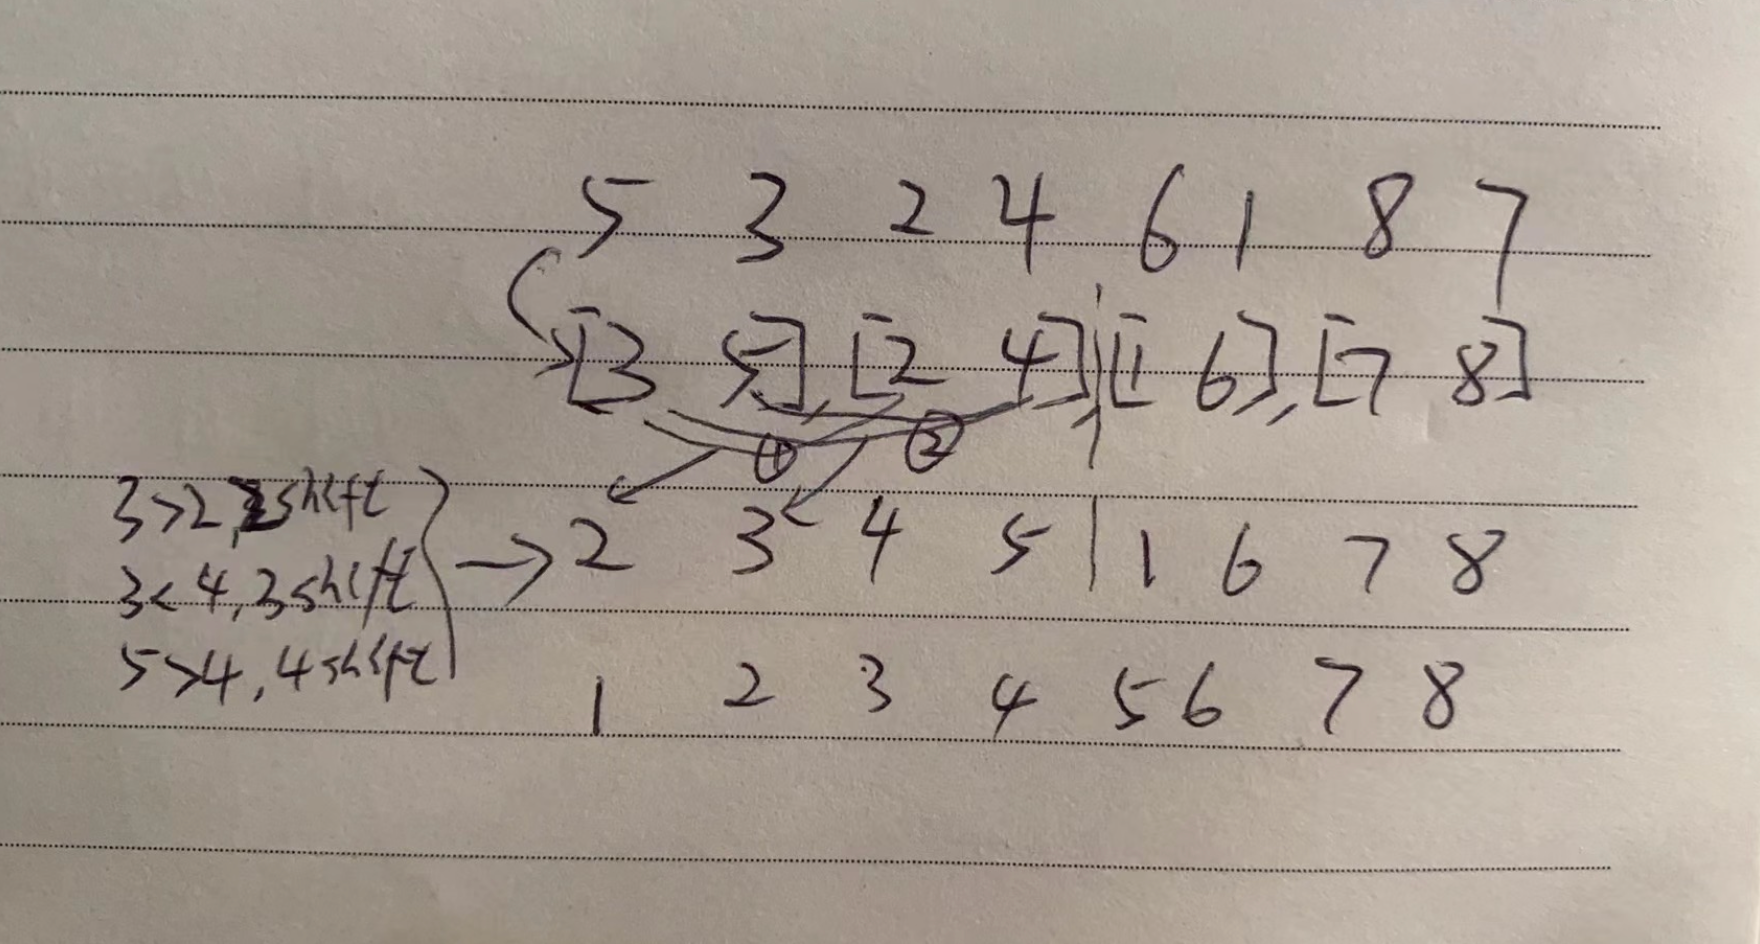 5 3 2 4 6 1 8 7
[3 5], [2 4], [1 6], [7 8]
① ②
3>2, 2shift
3<4, 3shift
5>4, 4shift
→ 2 3 4 5 | 1 6 7 8
1 2 3 4 5 6 7 8